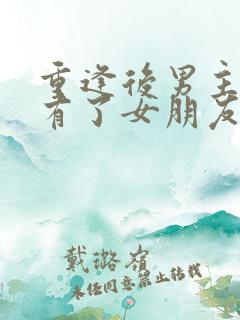 重逢後男主
有了女朋友
戴璐嶺
未经同意禁止转载